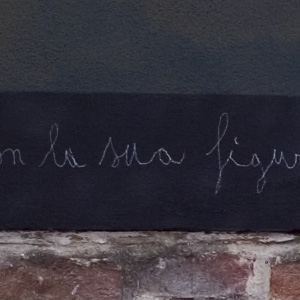 on la sua figu